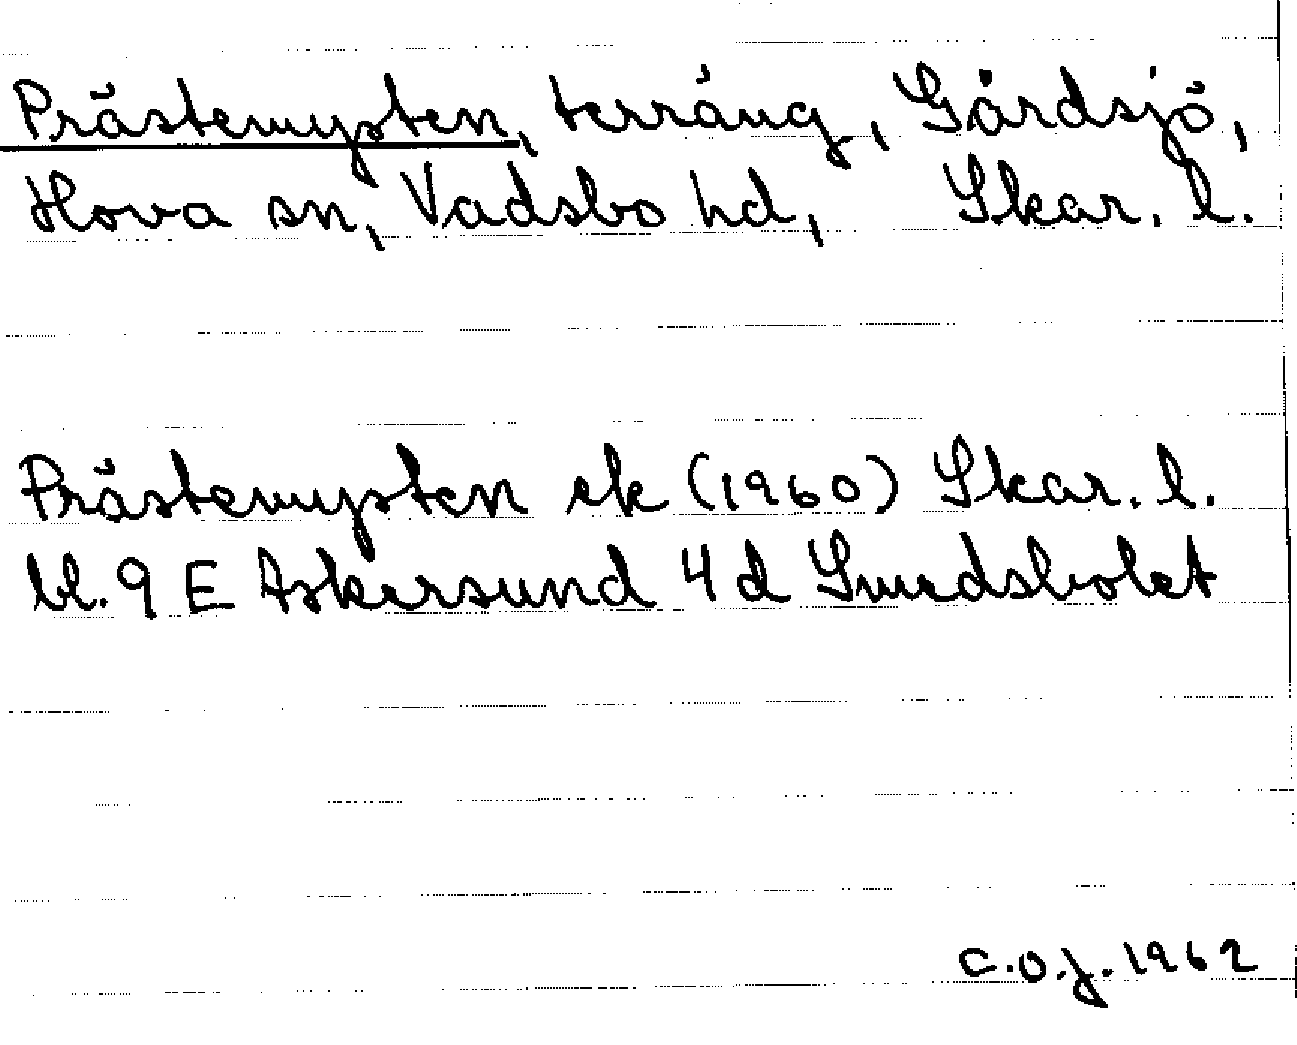 Prästemysten, terräng, Gårdsjö,
Hova sn, Vadsbo hd, Skar. l.
Prästemysten ek (1960) Skar. l.
bl. 9 E Askersund 4 d Smedsbolet
C.O.J. 1962